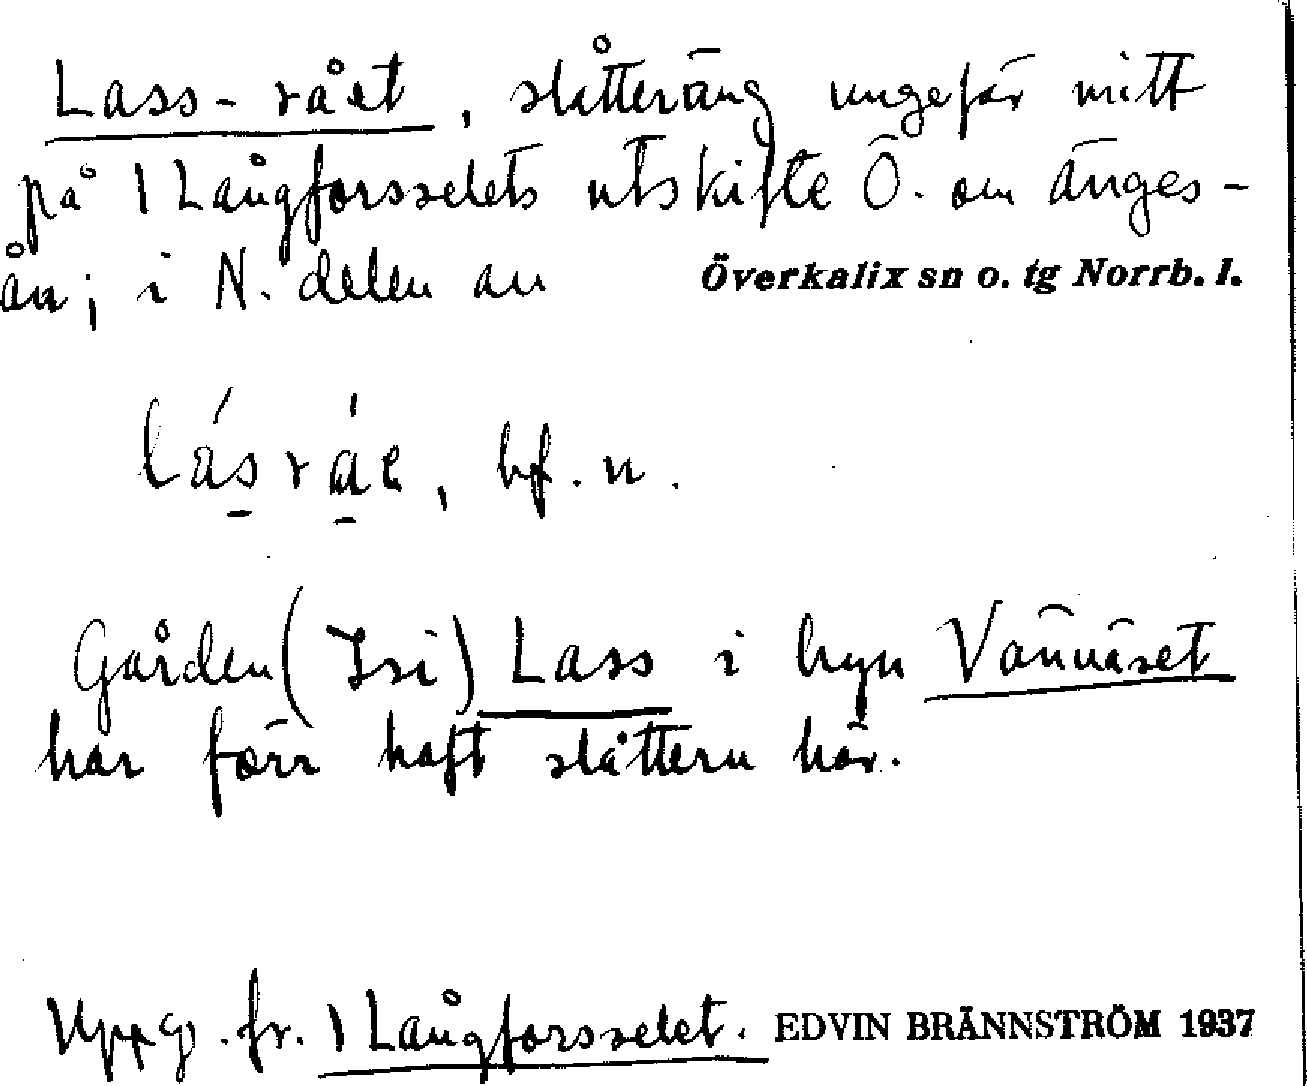 Lass-rået, slåtteräng ungefär mitt
på 1 Långforsselets utskifte Ö. om änges-
ån; i N. delen av
Överkalix sn o. tg Norrb. l.
lásrá̀e, bf. n.
Gården (Isi) Lass i byn Vännäset
har förr haft slåttern här.
Uppg. fr. 1 Långforsselet. EDVIN BRÄNNSTRÖM 1937